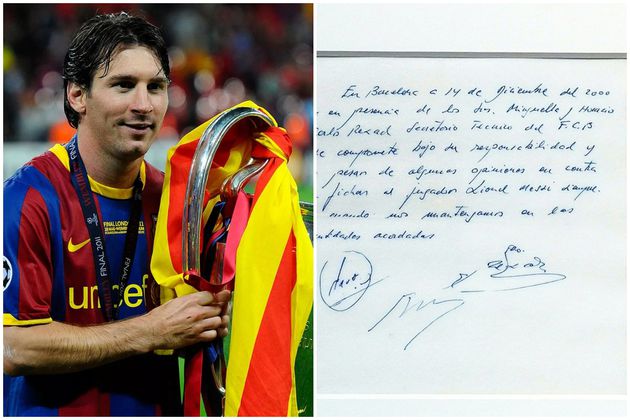 FINAL LONDON
FINAL 2011
unicef
En Barcelona, a 14 de Diciembre del 2000
en presencia de los Srs. Minguella y Horacio
Carlo Rexach Secretario Tecnico del F.C.B
se compromete bajo su responsabilidad y
pesar de algunas opiniones en contra
fichar al jugador Lionel Messi siempre
cuando nos mantengamos en las
cantidades acordadas